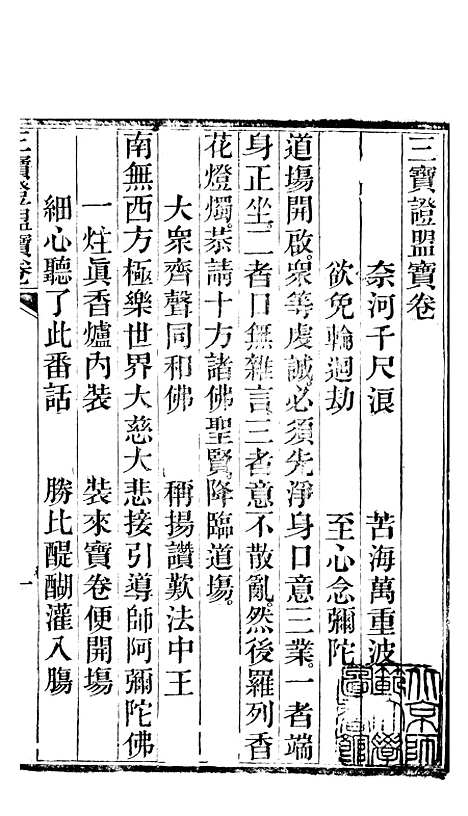 三寶證盟寶卷
奈河千尺浪　苦海萬重波
欲免輪迴劫　至心念彌陀
道場開啟。衆等虔誠。必須先淨身口意三業。一者端
身正坐。二者口無雜言。三者意不散亂。然後羅列香
花燈燭。恭請十方諸佛聖賢。降臨道場。
大衆齊聲同和佛　稱揚讚歎法中王
南無西方極樂世界大慈大悲接引導師阿彌陀佛
一炷眞香爐內裝　裝來寶卷便開場
細心聽了此番話　勝比醍醐灌入腸
三寶證盟寶卷
一